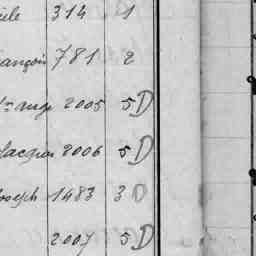 314 1
ançois 781 2
2005 5 D
Jacques 2006 5 D
Joseph 1483 3 D
2007 5 D